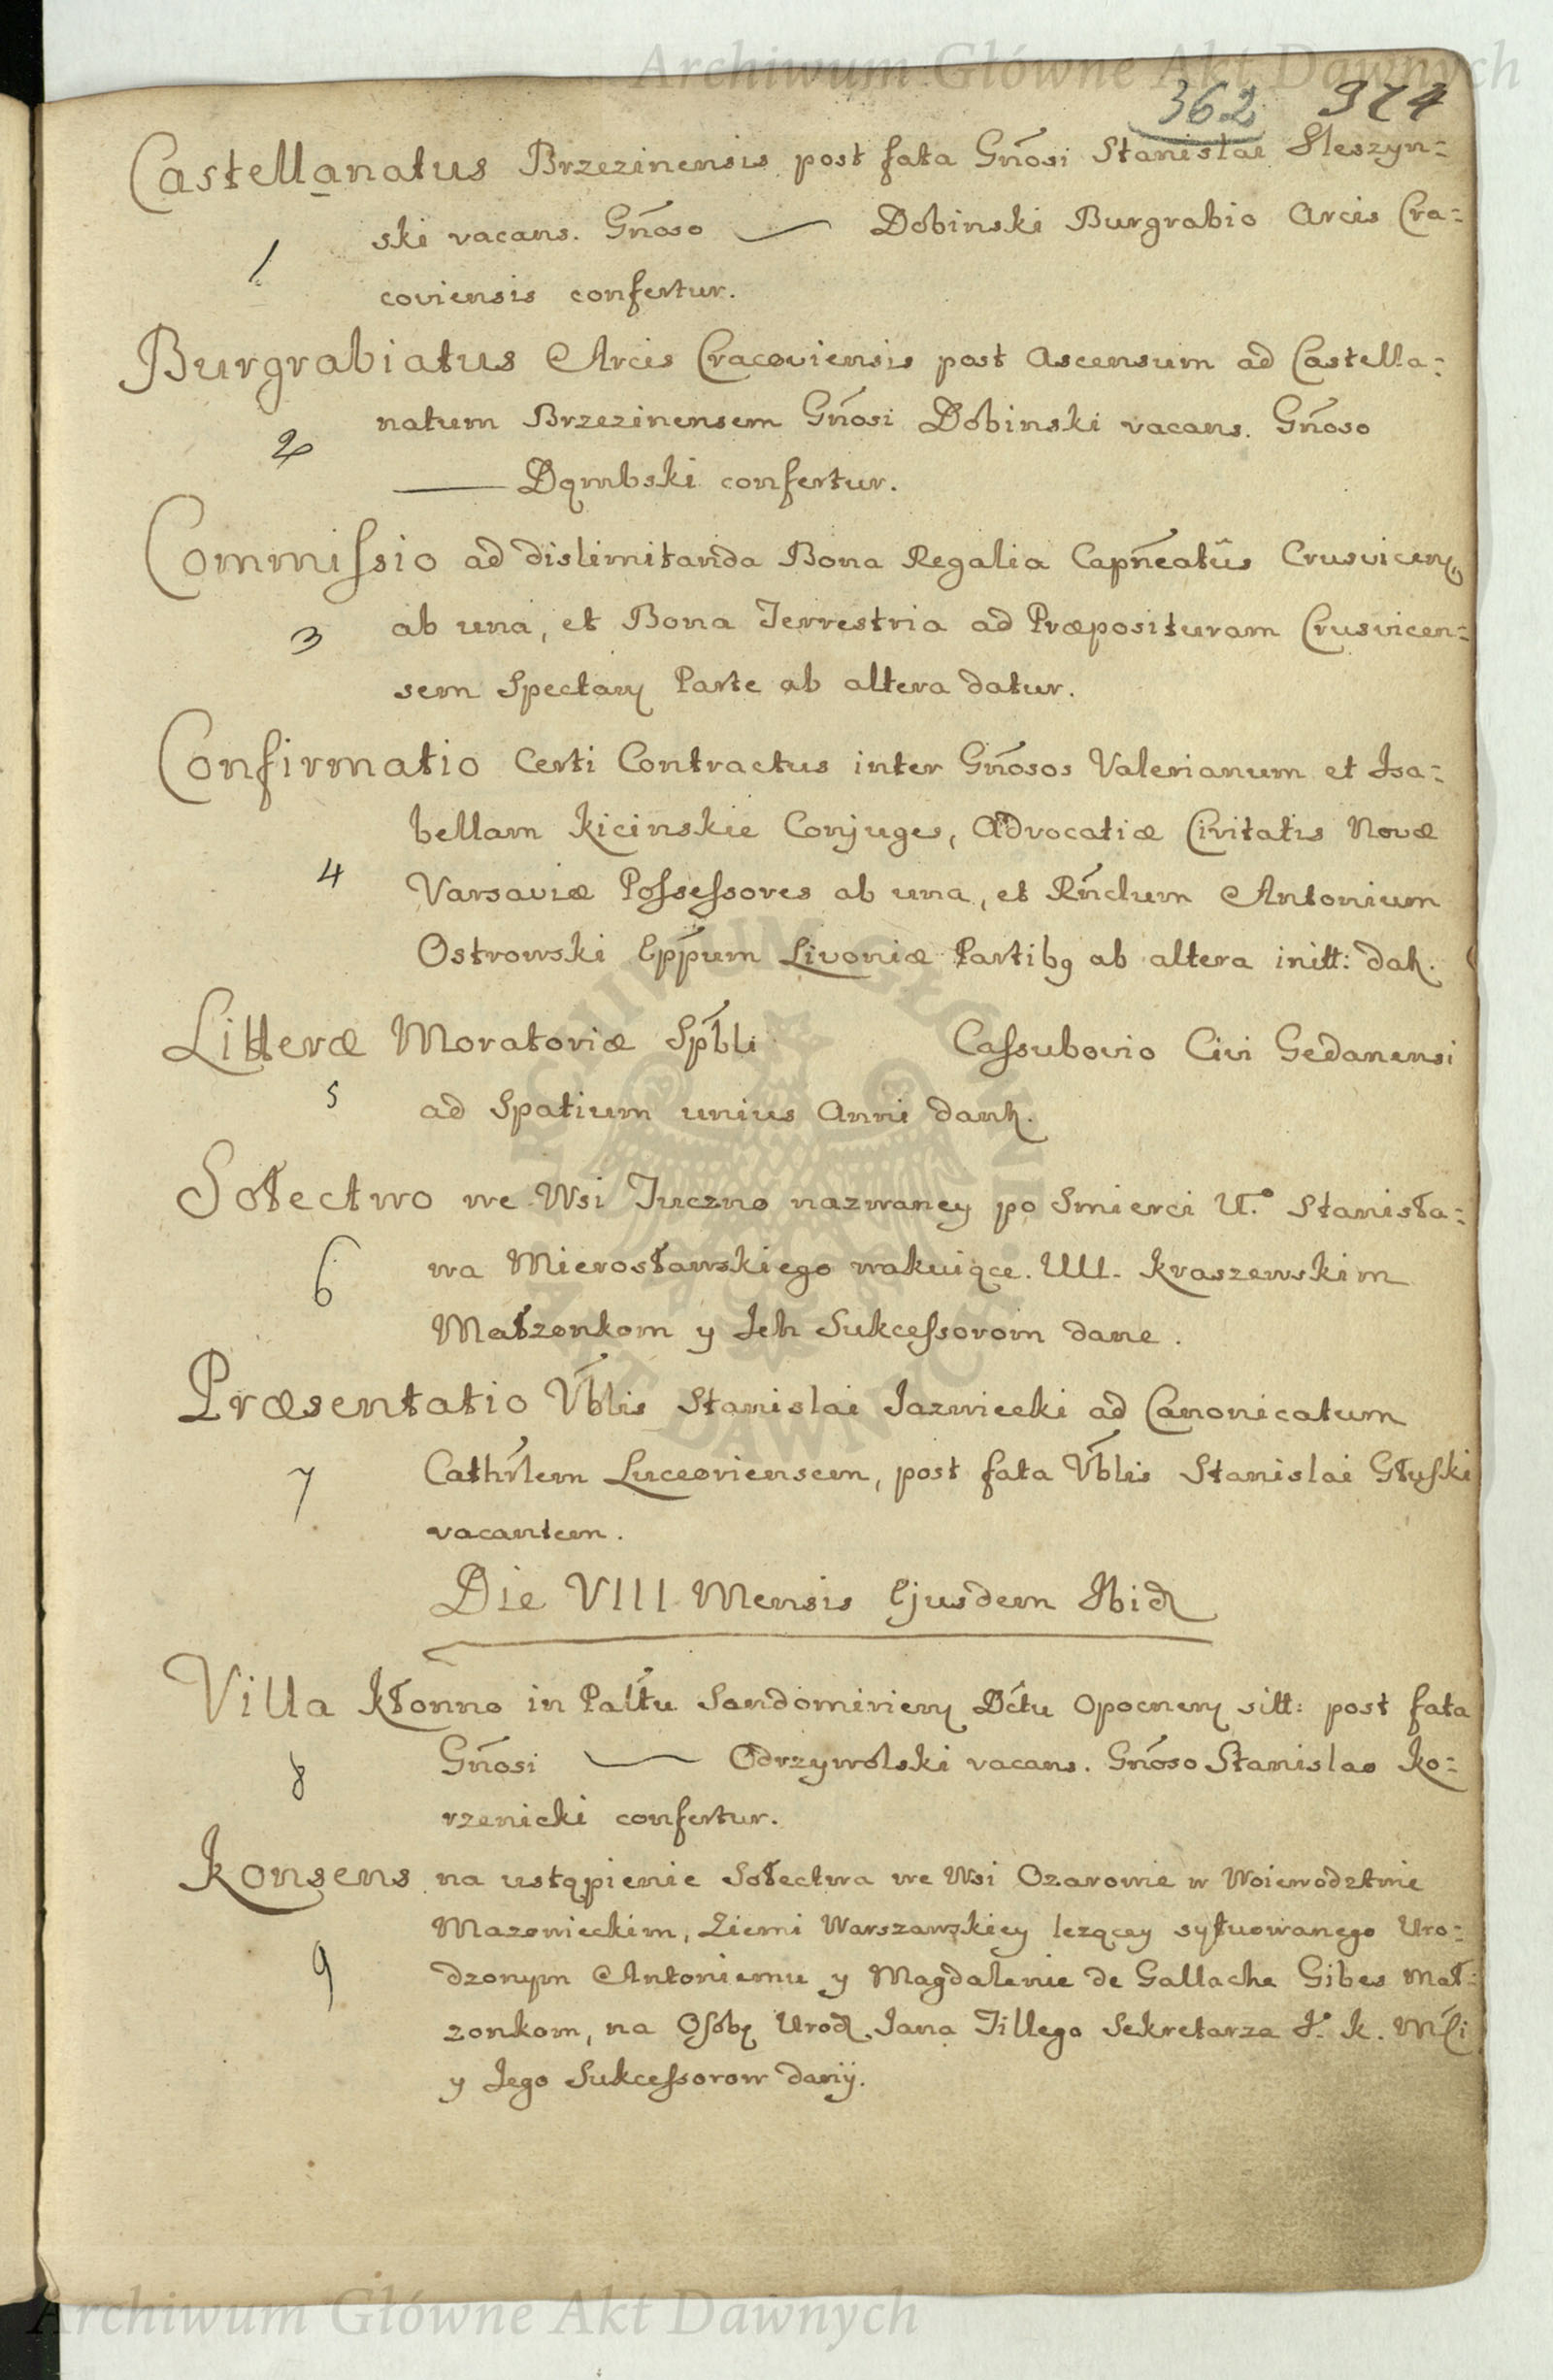 Archiwum Główne Akt Dawnych
362 324
Castellanatus Brzezinensis post fata Gńosi Stanislai Sleszyn=
ski vacans. Gńoso — Dobinski Burgrabio Arcis Cra=
1
coviensis confertur.
Burgrabiatus Arcis Cracoviensis post Ascensum ad Castella=
natum Brzezinensem Gńosi Dobinski vacans. Gńoso
2
— Dąmbski confertur.
Commissio ad dislimitanda Bona Regalia Capńeatûs Crusvicen
3
ab una, et Bona Terrestria ad Præposituram Crusvicen=
sem Spectan Parte ab altera datur.
Confirmatio Certi Contractus inter Gńosos Valerianum et Isa=
bellam Kicinskie Conjuges, Advocatiæ Civitatis Novæ
4
Varsaviæ Possessores ab una, et Rńdum Antonium
Ostrowski Eppum Livoniæ Partibꝫ ab altera initt: dat.
Litteræ Moratoriæ Spbli Cassubovio Civi Gedanensi
5
ad Spatium unius Anni dant.
Sołectwo we Wsi Tuczno nazwaney po Smierci U.° Stanisła=
6
wa Mierosławskiego wakuiące. UU. Kraszewskim
Małzonkom y Ich Sukcessorom dane.
Præsentatio Vblis Stanislai Jazwiecki ad Canonicatum
7
Cathrlem Luceoviensem, post fata Vblis Stanislai Głuski
vacantem.
Die VIII Mensis Ejusdem Ibid
Villa Kłonno in Paltu Sandomirien Dctu Opocnen sitt: post fata
8
Gńosi — Odrzywolski vacans. Gńoso Stanislao Ko=
rzenicki confertur.
Konsens na ustąpienie Sołectwa we Wsi Ozarowie w Woiewodztwie
Mazowieckim, Ziemi Warszawskiey lezącey sytuowanego Uro=
9
dzonym Antoniemu y Magdalenie de Gallache Gibes Mał=
zonkom, na Osobę Urod. Jana Tillego Sekretarza J. K. Mći
y Jego Sukcessorow dany.
Archiwum Główne Akt Dawnych